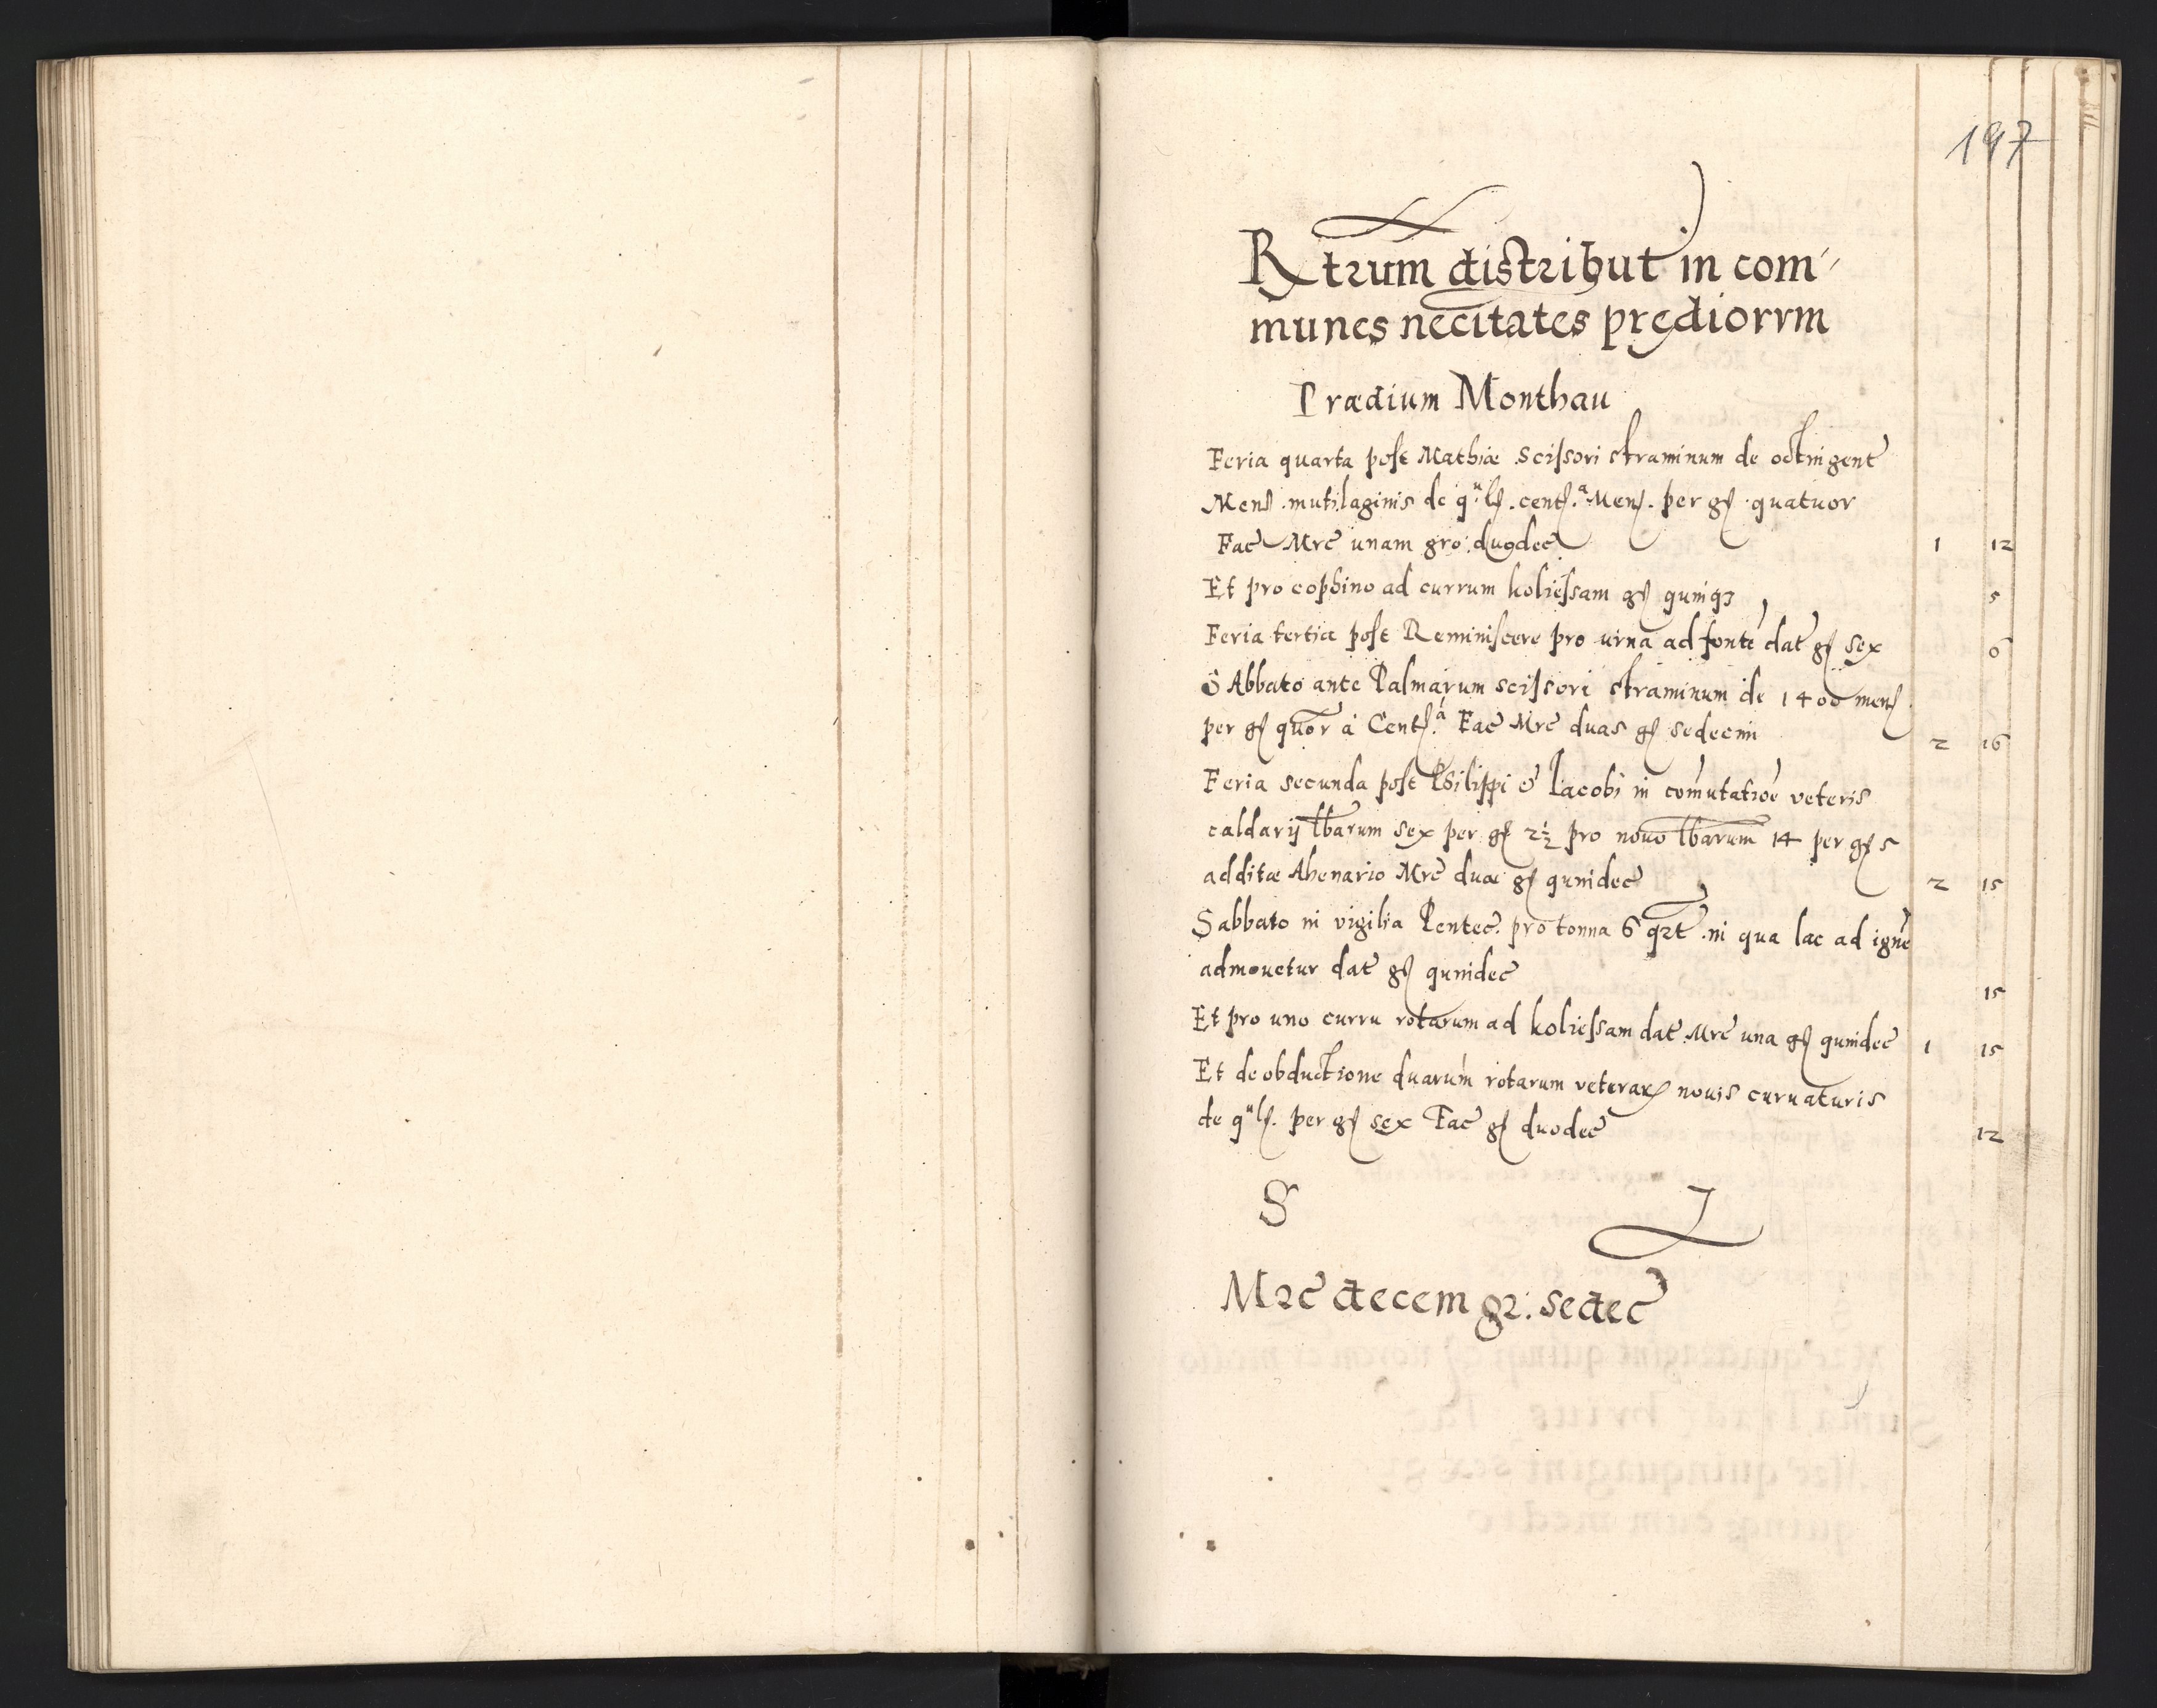 197
Rtrum distribut in com
munes necitates prediorrm
Prædium Monthau
Feria quarta post Mathiæ Scissori straminum de octingent
Mens. mutilaginis de qulꝭ. centꝭ.a Menꝭ. per gꝭ quatuor
Fac Mrc unam gro: duodec 1 12
Et pro cophino ad currum koliessam gꝭ quinqꝫ 5
Feria tertia post Reminiscere pro urna ad fonte dat gꝭ sex 6
SAbbato ante Palmarum scissori straminum de 1400 menꝭ
per gꝭ quor a Centꝭ.a Fac Mrc duas gꝭ sedecim 2 16
Feria secunda post Philippi & Jacobi in comutatioe veteris
caldarij lbarum sex per gꝭ 2½ pro novo lbarum 14 per gꝭ 5
additæ Ahenario Mrc duæ gꝭ quindec 2 15
Sabbato in vigilia Pentec. pro tonna 6 qrt. in qua lac ad igne
admouetur dat gꝭ quindec 15
Et pro uno curru rotarum ad koliessam dat Mrc una gꝭ quindec 1 15
Et de obductione duarum rotarum veterarꝝ nouis curuaturis
de qulꝭ. per gꝭ sex Fac gꝭ duodec 12
S
Mrc decem gr: sedec